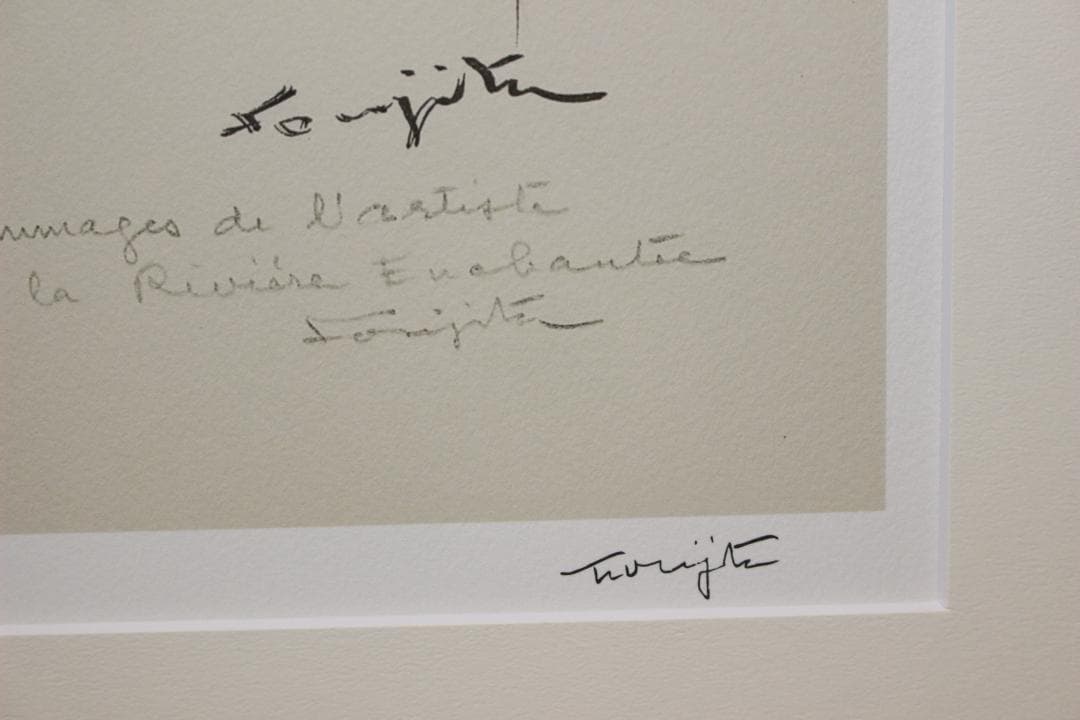 Foujita
mmages de l'artiste
la Rivière Enchantée
Foujita
Foujita